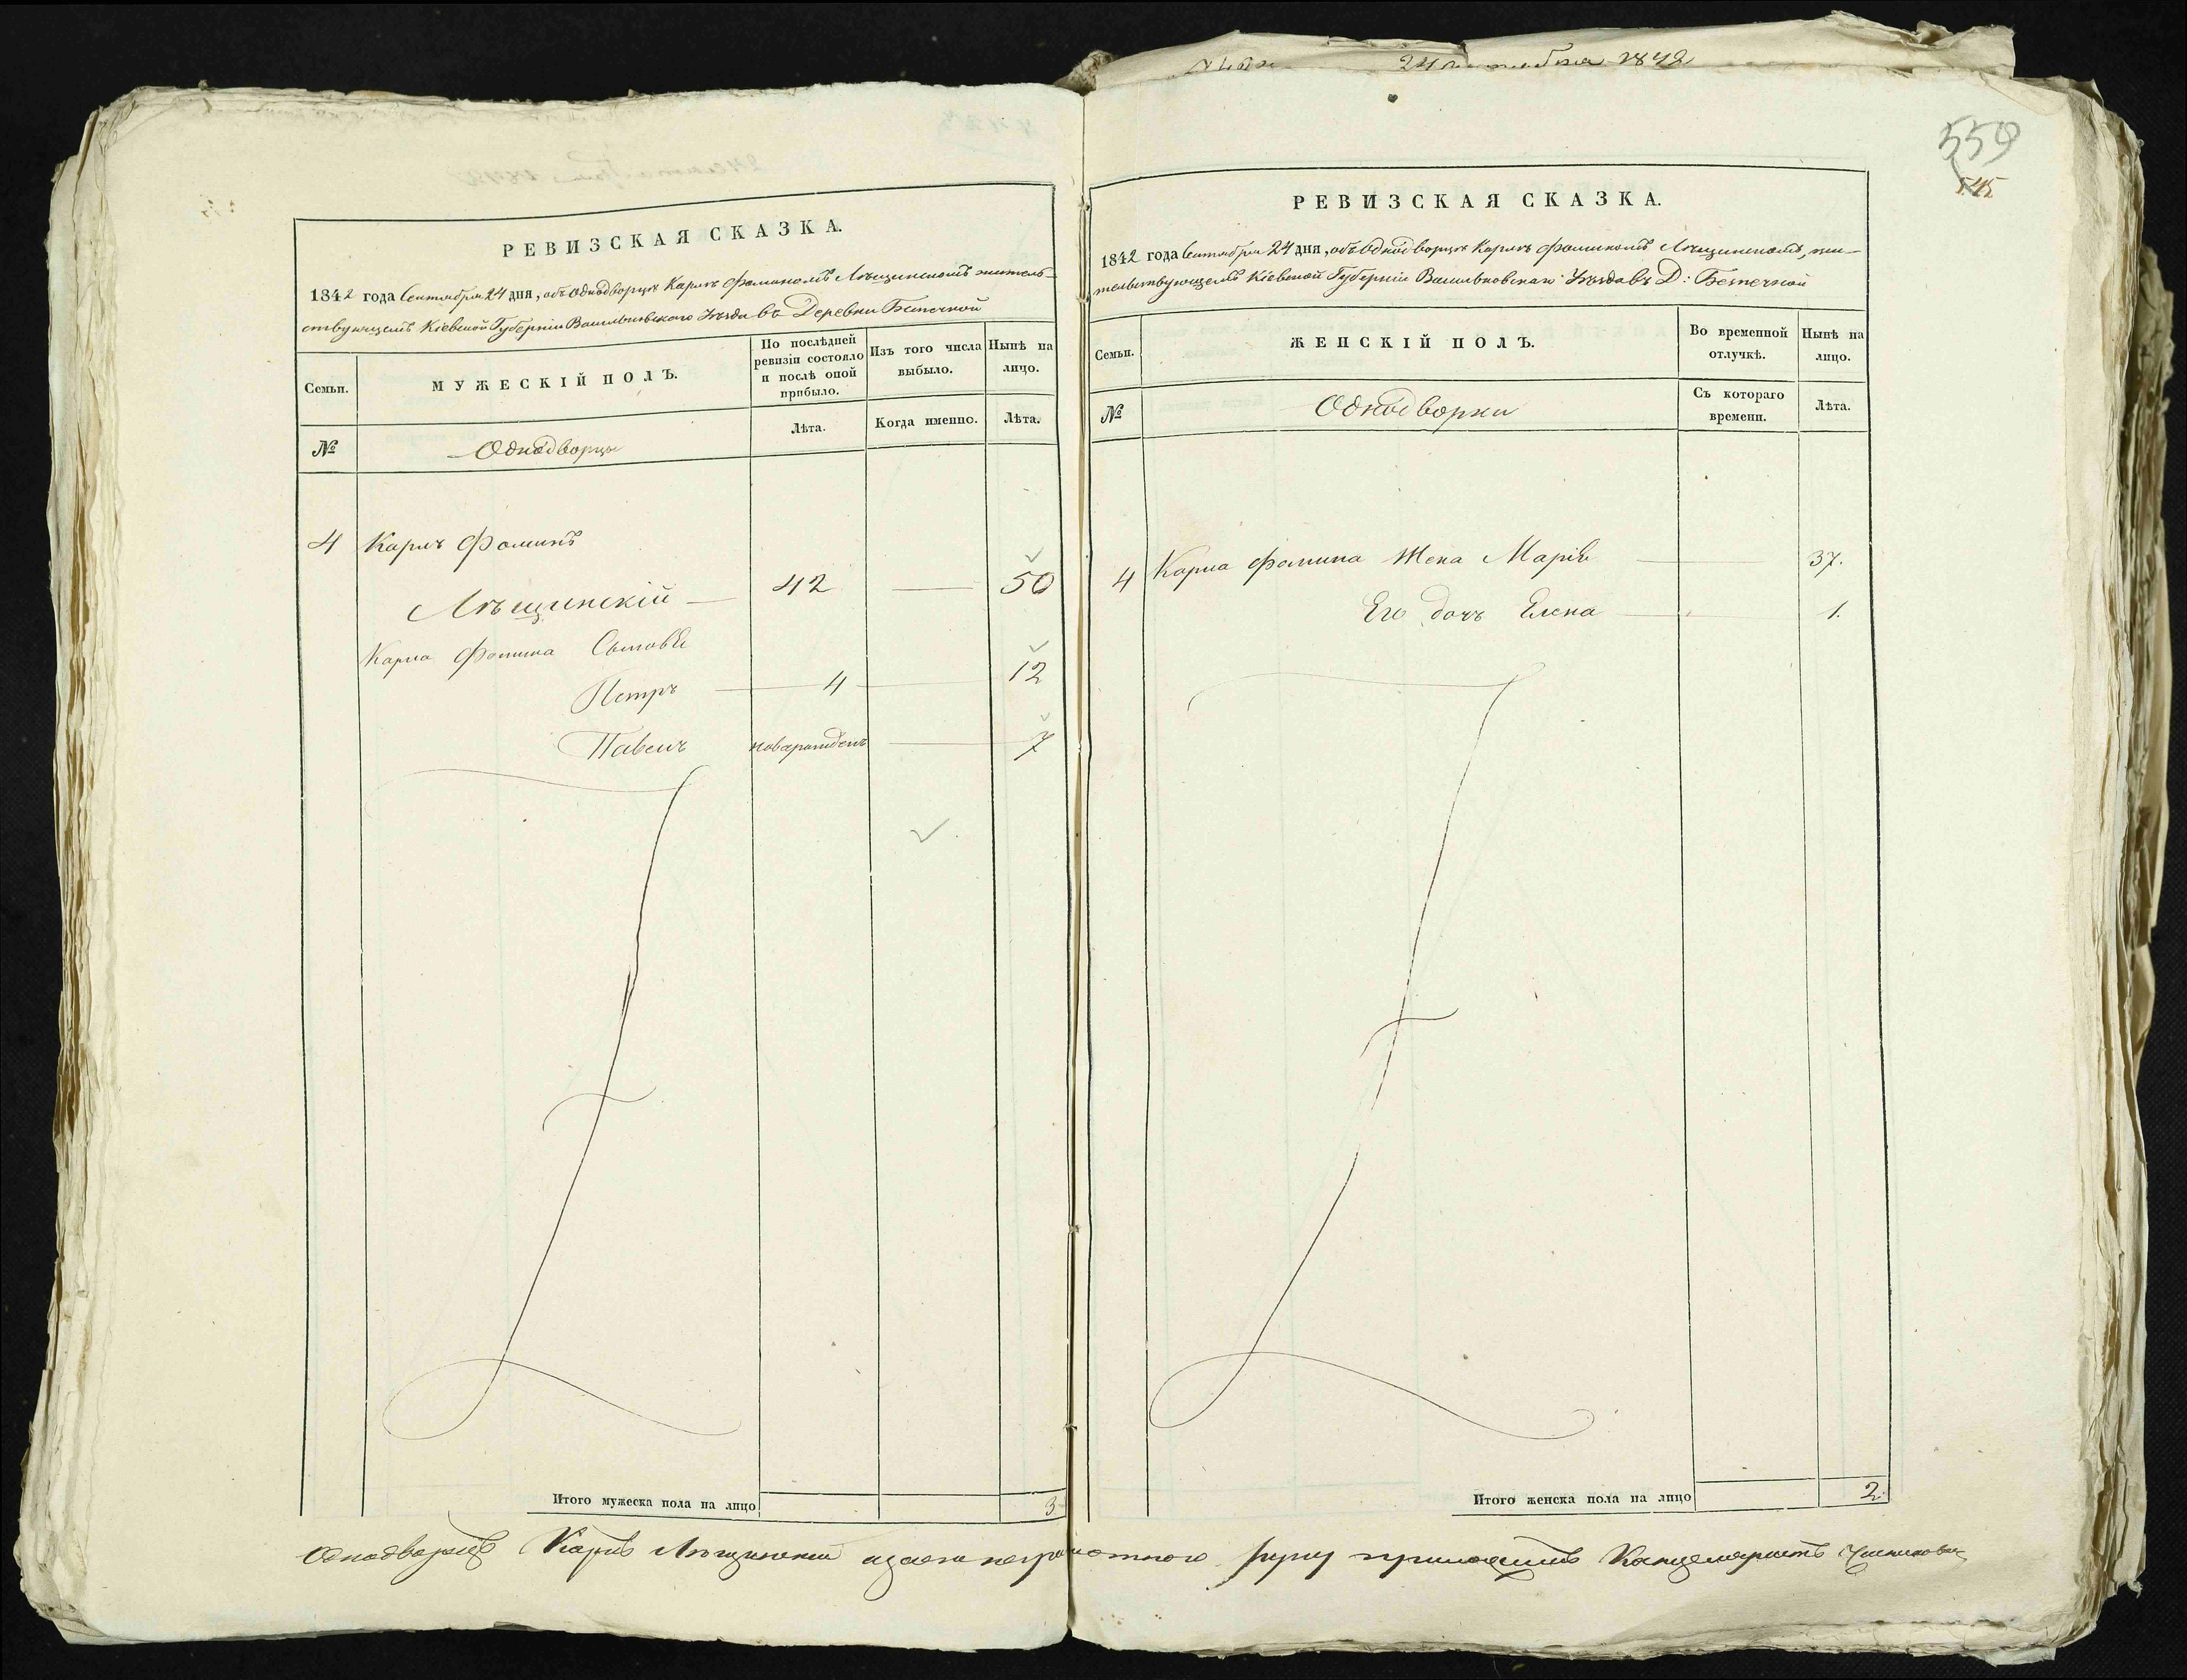 24 сентября 1842
559
545
РЕВИЗСКАЯ СКАЗКА.
1842 года Сентября 24 дня, объ Однодворцѣ Карлѣ Фоминомъ Лѣщинскомъ житель-
ствующемъ Кіевской Губерніи Васильковскаго Уѣзда въ Деревни Безпечной
Семьи.
МУЖЕСКІЙ ПОЛЪ.
По послѣдней ревизіи состояло и послѣ оной прибыло.
Изъ того числа выбыло.
Нынѣ на лицо.
№
Однодворцы
Лѣта.
Когда именно.
Лѣта.
4 Карлъ Фоминъ
Лѣщинскій — 42 — 50
Карла Фомина Сыновья
Петръ — 4 — 12
Павелъ новорожденъ — 7
Итого мужеска пола на лицо 3
РЕВИЗСКАЯ СКАЗКА.
1842 года Сентября 24 дня, объ Однодворцѣ Карлѣ Фоминомъ Лѣщинскомъ, жи-
тельствующемъ Кіевской Губерніи Васильковскаго Уѣзда въ Д: Безпечной
Семьи.
ЖЕНСКІЙ ПОЛЪ.
Во временной отлучкѣ.
Нынѣ на лицо.
№
Однодворки
Съ котораго времени.
Лѣта.
4 Карла Фомина Жена Марія — 37.
Его дочь Елена — 1.
Итого женска пола на лицо 2.
Однодворецъ Карлъ Лѣщинскій а за его неграмотного руку приложилъ Канцеляристъ